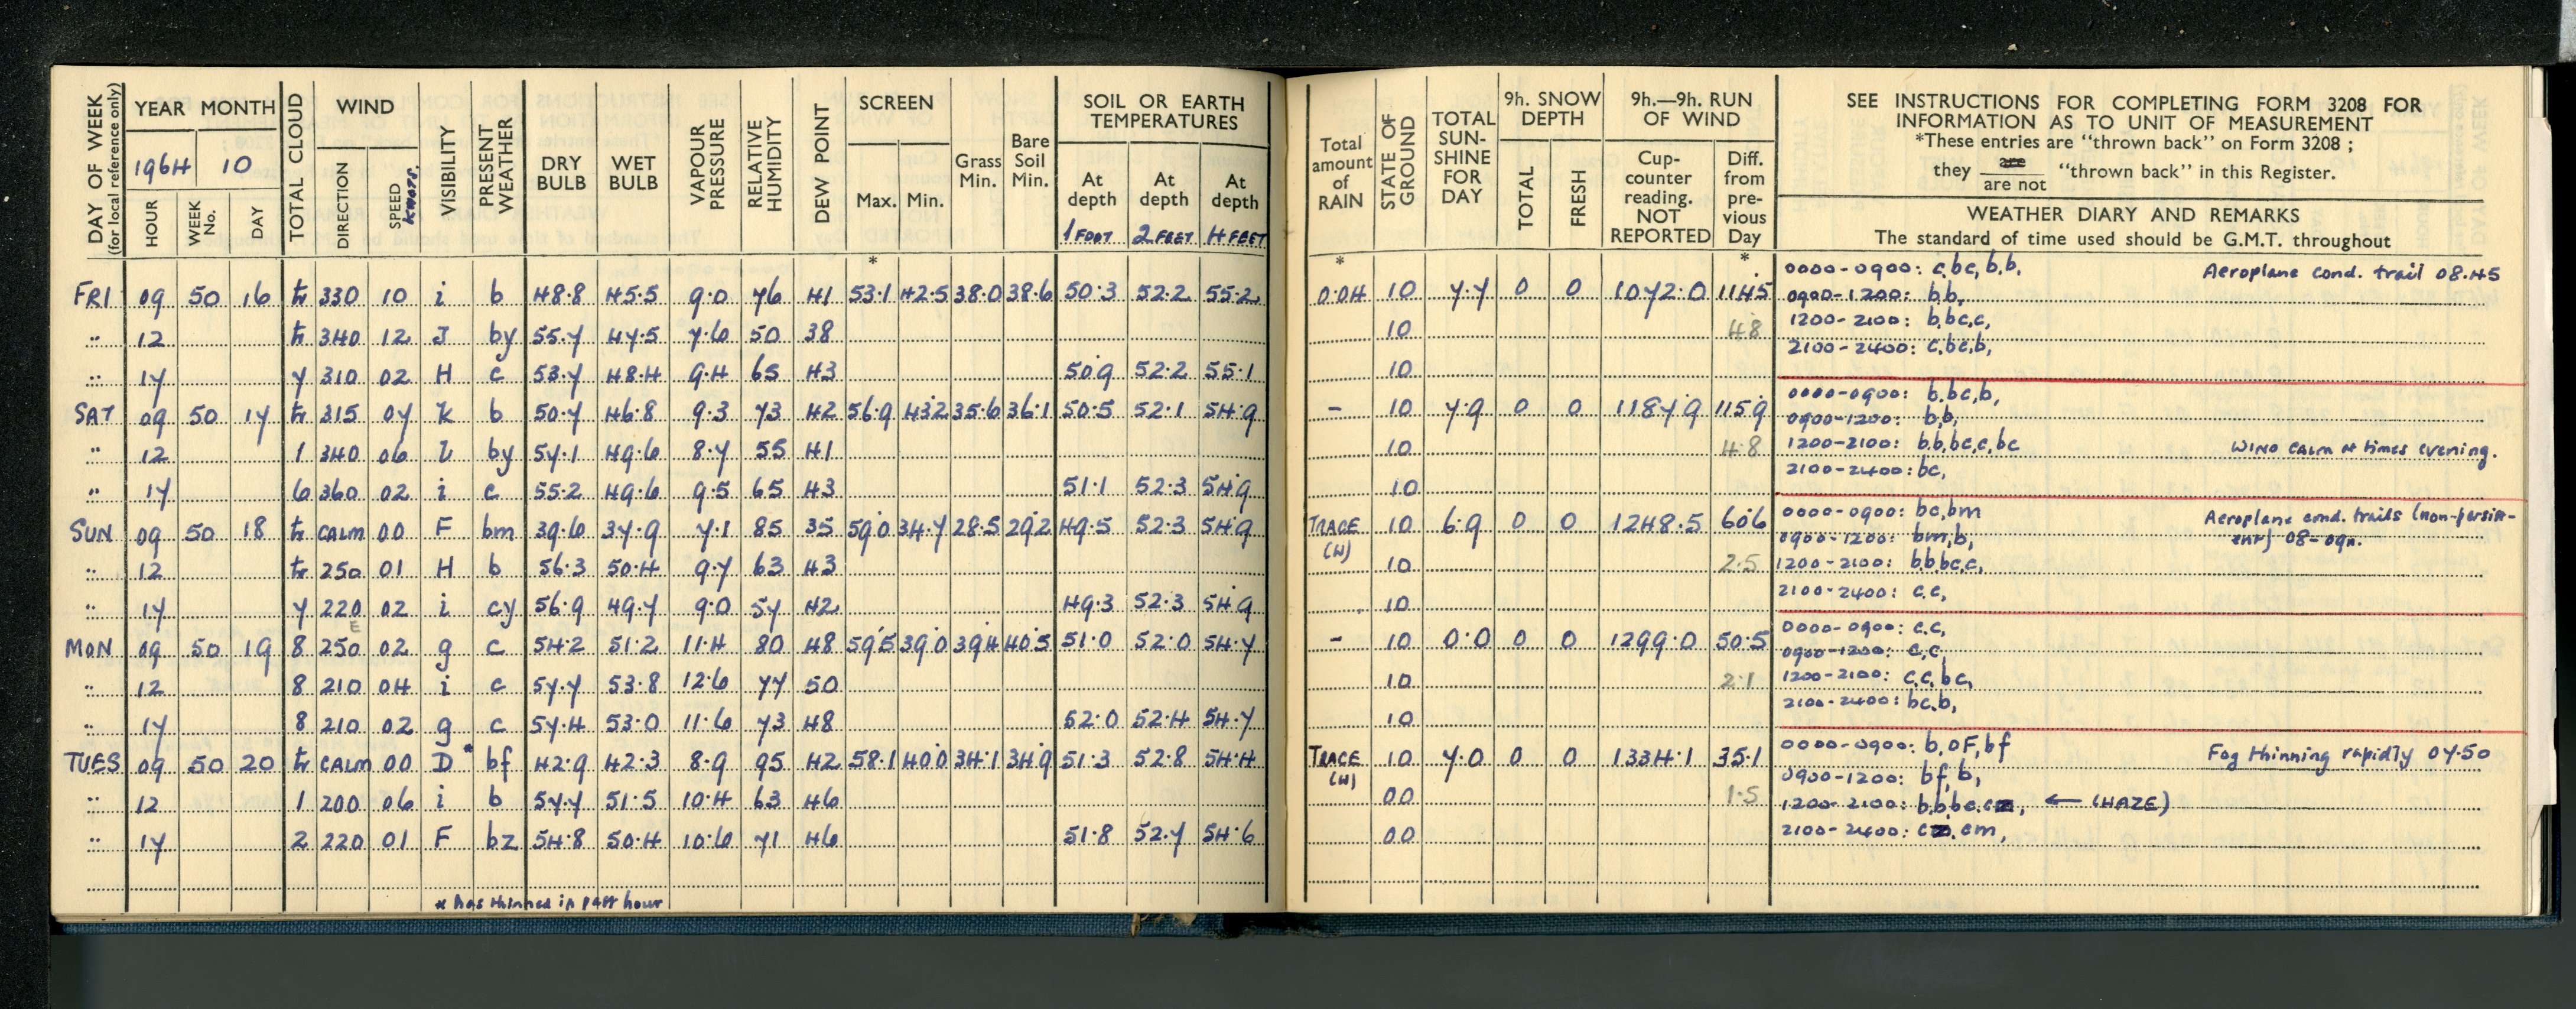 DAY OF WEEK (for local reference only) YEAR MONTH TOTAL CLOUD WIND VISIBILITY PRESENT WEATHER DRY BULB WET BULB VAPOUR PRESSURE RELATIVE HUMIDITY DEW POINT SCREEN Grass Min. Bare Soil Min. SOIL OR EARTH TEMPERATURES
1964 10
HOUR WEEK No. DAY DIRECTION SPEED KNOTS. Max. Min. At depth At depth At depth
1 FOOT 2 FEET 4 FEET
Total amount of RAIN STATE OF GROUND TOTAL SUN-SHINE FOR DAY 9h. SNOW DEPTH TOTAL FRESH 9h.—9h. RUN OF WIND Cup-counter reading. NOT REPORTED Diff. from pre-vious Day
SEE INSTRUCTIONS FOR COMPLETING FORM 3208 FOR
INFORMATION AS TO UNIT OF MEASUREMENT
*These entries are "thrown back" on Form 3208 ;
they are / are not "thrown back" in this Register.
WEATHER DIARY AND REMARKS
The standard of time used should be G.M.T. throughout
* * *
FRI 09 50 16 tr 330 10 i b 48.8 45.5 9.0 76 41 53.1 42.5 38.0 38.6 50.3 52.2 55.2 0.04 10 7.7 0 0 1072.0 114.5
0000-0900: c,bc,b,b, Aeroplane cond. trail 08.45
0900-1200: b,b,
" 12 tr 340 12 J by 55.7 47.5 7.6 50 38 10 4.8
1200-2100: b,bc,c,
2100-2400: c,bc,b,
" 17 7 310 02 H c 53.7 48.4 9.4 65 43 50.9 52.2 55.1 10
SAT 09 50 17 tr 315 07 K b 50.7 46.8 9.3 73 42 56.9 43.2 35.6 36.1 50.5 52.1 54.9 - 10 7.9 0 0 1187.9 115.9
0000-0900: b,bc,b,
0900-1200: b,b,
" 12 1 340 06 by 57.1 49.6 8.7 55 41 10 4.8
1200-2100: b,b,bc,c,bc WIND CALM at times evening.
2100-2400: bc,
" 17 6 360 02 i c 55.2 49.6 9.5 65 43 51.1 52.3 54.9 10
SUN 09 50 18 tr CALM 00 F bm 39.6 37.9 7.1 85 35 59.0 34.7 28.5 29.2 49.5 52.3 54.9 TRACE (W) 10 6.9 0 0 1248.5 60.6
0000-0900: bc,bm Aeroplane cond. trails (non-persist-
0900-1200: bm,b, ent) 08-09h.
" 12 tr 250 01 H b 56.3 50.4 9.7 63 43 10 2.5
1200-2100: b,b,bc,c,
2100-2400: c,c,
" 17 7 220 02 i cy 56.9 49.7 9.0 57 42 49.3 52.3 54.9 10
E
MON 09 50 19 8 250 02 g c 54.2 51.2 11.4 80 48 59.5 39.0 39.4 40.5 51.0 52.0 54.7 - 10 0.0 0 0 1299.0 50.5
0000-0900: c,c,
0900-1200: c,c,
" 12 8 210 04 i c 57.7 53.8 12.6 77 50 10 2.1
1200-2100: c,c,bc,
2100-2400: bc,b,
" 17 8 210 02 g c 57.4 53.0 11.6 73 48 52.0 52.4 54.7 10
TUES 09 50 20 tr CALM 00 D * bf 42.9 42.3 8.9 95 42 58.1 40.0 34.1 34.9 51.3 52.8 54.4 TRACE (W) 10 7.0 0 0 1334.1 35.1
0000-0900: b,oF,bf Fog thinning rapidly 07.50
0900-1200: bf,b,
" 12 1 200 06 i b 57.7 51.5 10.4 63 46 00 1.5
1200-2100: b,b,bc,cz, ← (HAZE)
" 17 2 220 01 F bz 54.8 50.4 10.6 71 46 51.8 52.7 54.6 00
2100-2400: cz, cm,
* has thinned in past hour